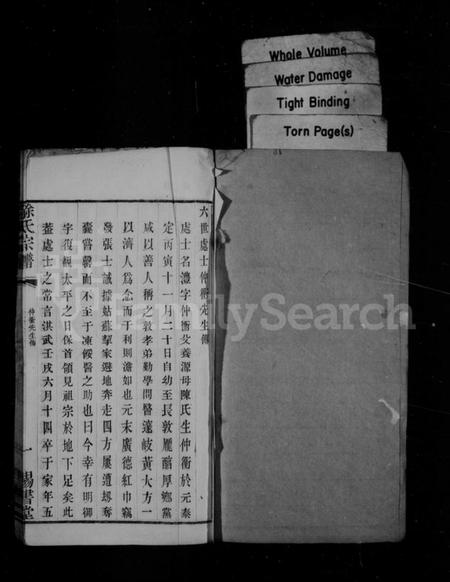 Whole Volume
Water Damage
Tight Binding
Torn Page(s)
六世處士仲衡先生傳
處士名澧字仲衡父養源母陳氏生仲衡於元泰
定丙寅十一月二十日自幼至長敦龐醕厚鄉黨
咸以善人稱之敦孝弟勤學問醫遵岐黃大方一
以濟人爲念而于利則澹如也元末廣德紅巾竊
發張士誠據姑蘇挈家遯地奔走四方屢遭刼奪
囊嘗罄而不至于凍餒醫之助也曰今幸有明御
宇復覩太平之日保首領見祖宗於地下足矣此
蓋處士之常言洪武壬戌六月十四卒于家年五
徐氏宗譜
仲衡先生傳
一
錫書堂
FamilySearch